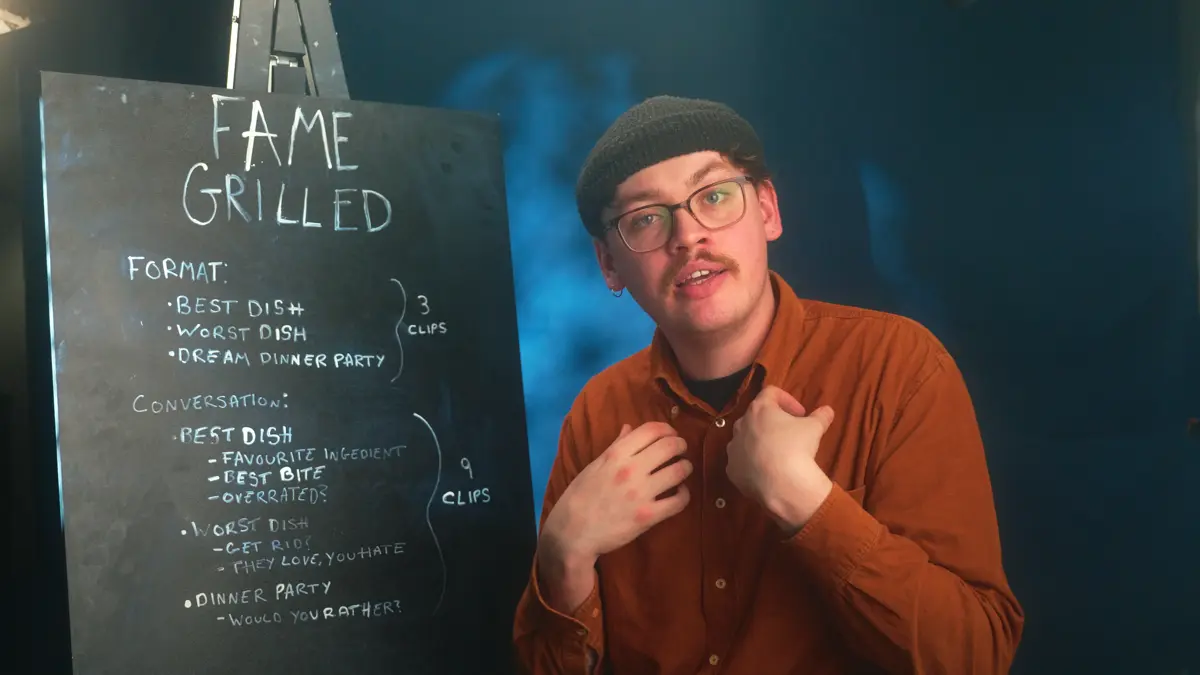 FAME
GRILLED
FORMAT:
• BEST DISH
• WORST DISH
• DREAM DINNER PARTY
3
CLIPS
CONVERSATION:
• BEST DISH
- FAVOURITE INGEDIENT
- BEST BITE
- OVERRATED?
• WORST DISH
- GET RID?
- THEY LOVE, YOU HATE
• DINNER PARTY
- WOULD YOU RATHER?
9
CLIPS